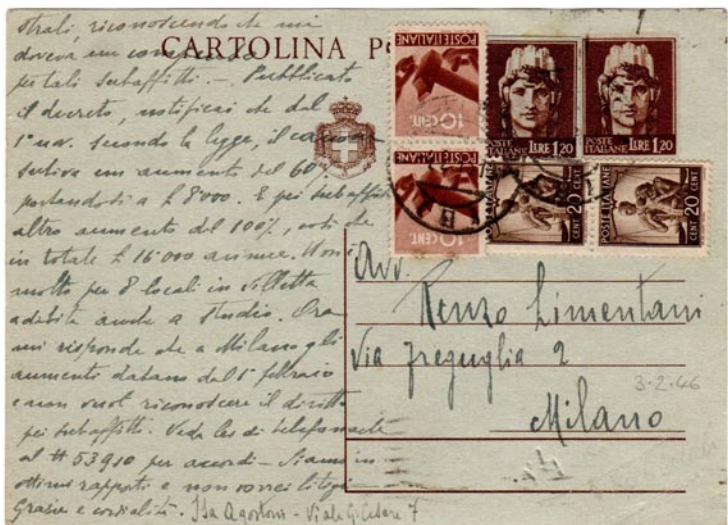 strali, riconoscendo che mi
doveva un compenso
per tali subaffitti. – Pubblicato
il decreto, notificai che dal
1° nov. secondo la legge, il canone
subiva un aumento del 60%
portandosi a £ 8'000. E pei subaffitti
altro aumento del 100%, così che
in totale £ 16'000 annue. Non è
molto per 8 locali in villetta
adibita anche a studio. Ora
mi risponde che a Milano gli
aumenti datano dal 1° febbraio
e non vuol riconoscere il diritto
pei subaffitti. Veda lei di telefonarle
al # 53910 per accordi – Siamo in
ottimi rapporti e non vorrei litigi
Grazie e cordialità. Isa Agostoni - Viale G. Cesare 7
CARTOLINA PO
POSTE ITALIANE
10 CENT.
POSTE ITALIANE
10 CENT.
POSTE ITALIANE LIRE 1,20
POSTE ITALIANE LIRE 1,20
POSTE ITALIANE
20 CENT
POSTE ITALIANE
20 CENT
Avv.
Renzo Limentani
Via Freguglia 2
Milano
3-2-46